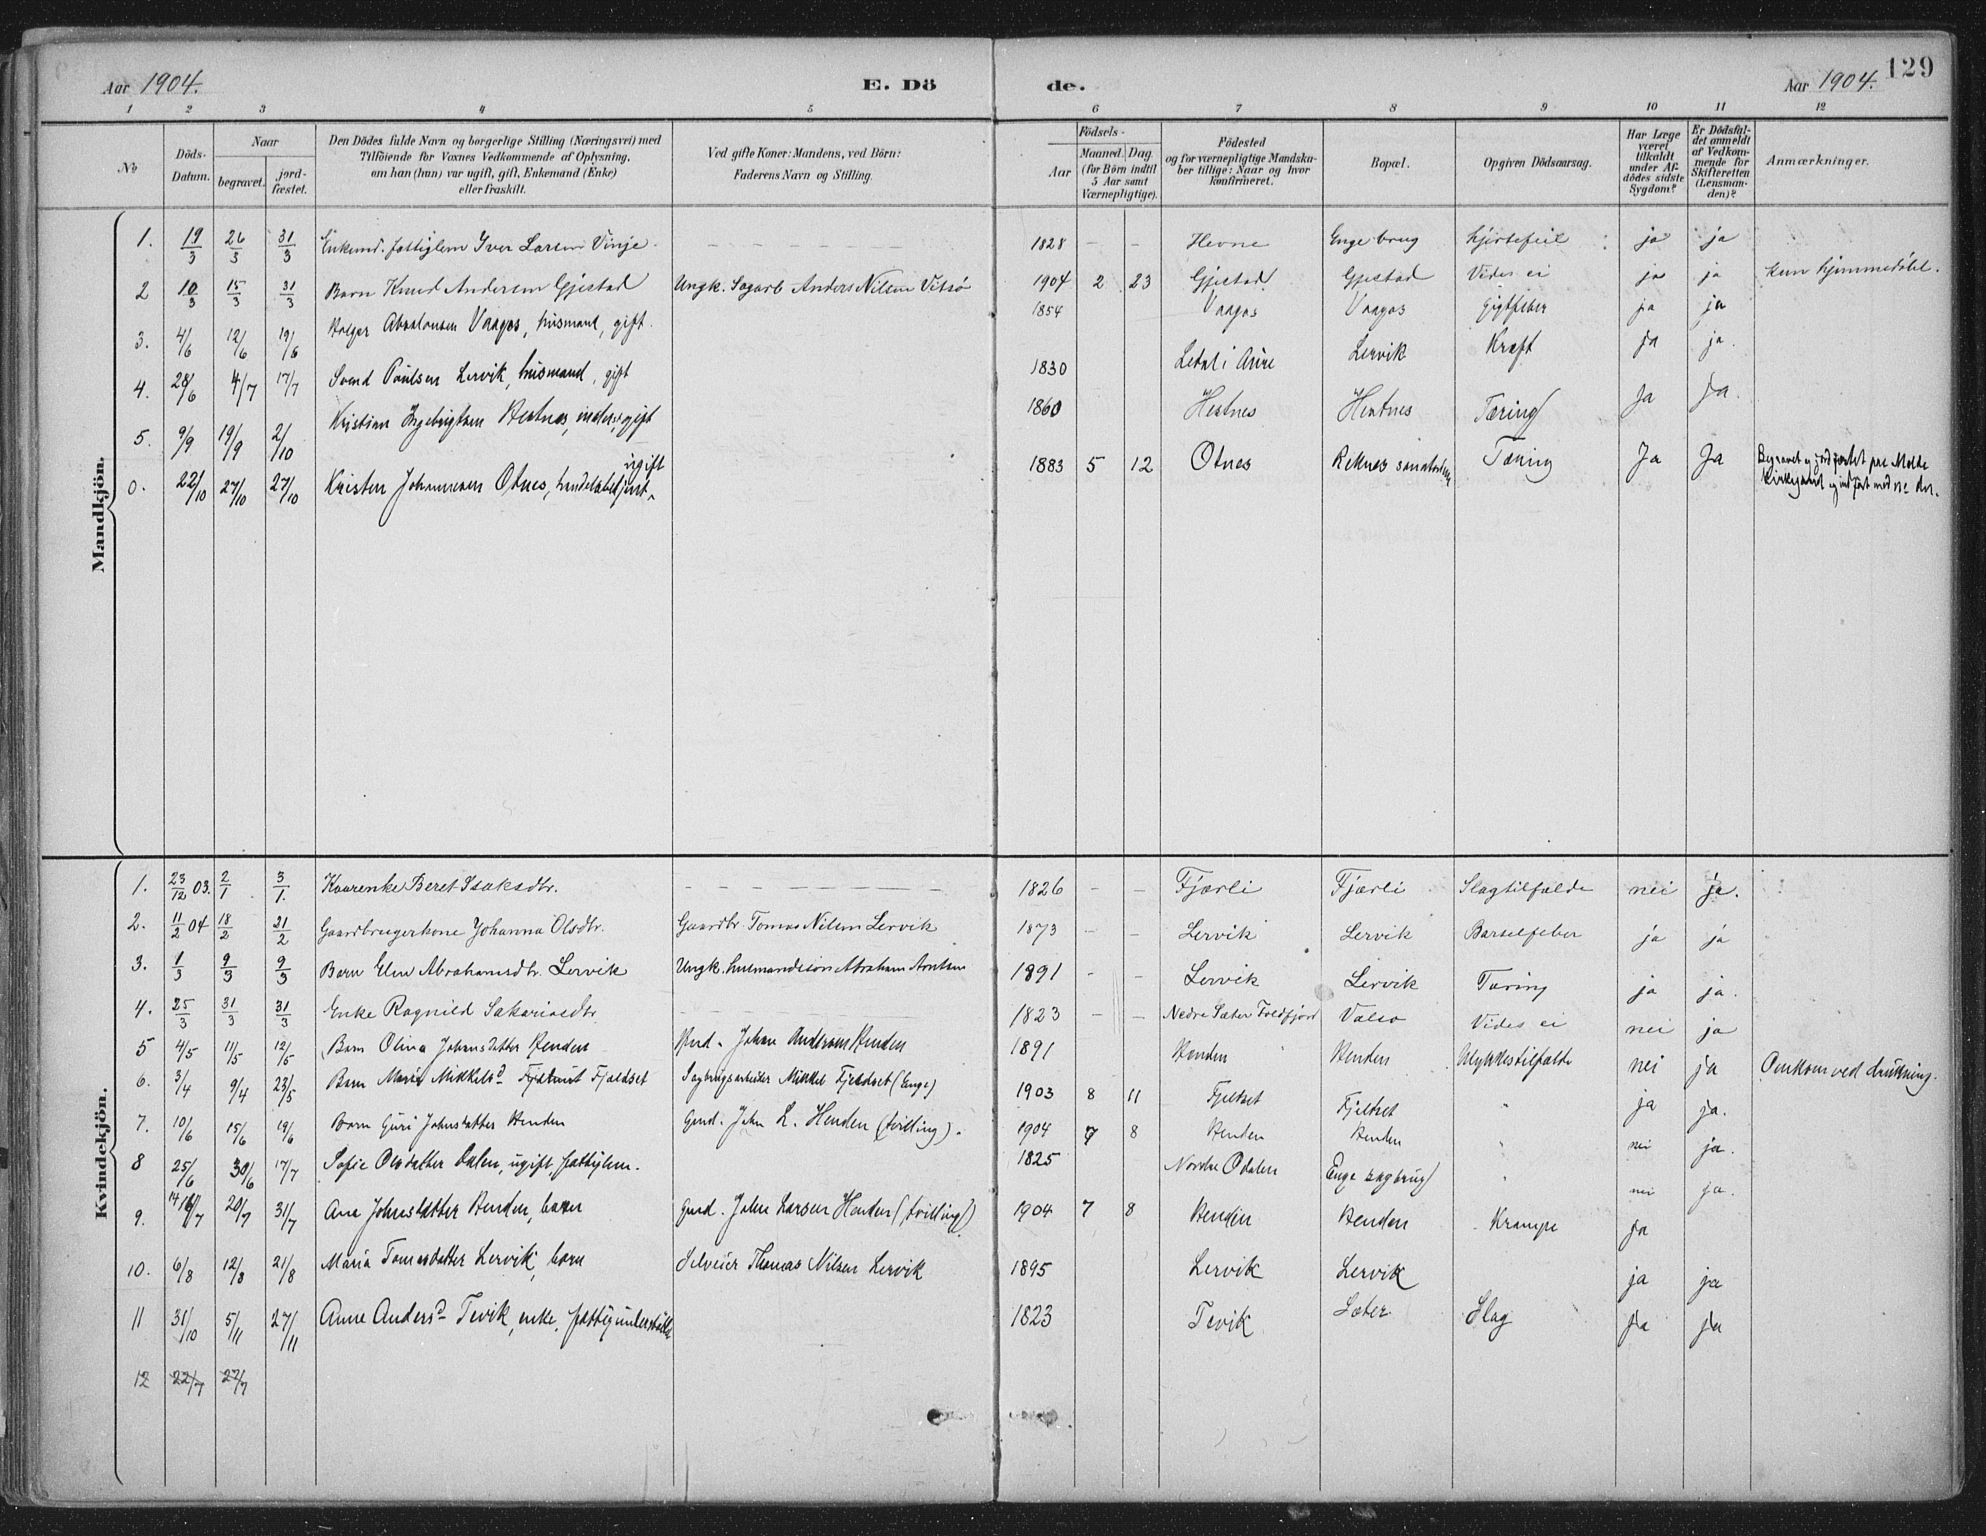 129
Aar 1904. E. Dö de. Aar 1904.
1 2 3 4 5 6 7 8 9 10 11 12
No
Döds-Datum.
Naar
begravet.
jord-fæstet.
Den Dödes fulde Navn og borgerlige Stilling (Næringsvei) med
Tilföiende for Voxnes Vedkommende af Oplysning,
om han (hun) var ugift, gift, Enkemand (Enke)
eller fraskilt.
Ved gifte Koner: Mandens, ved Börn:
Faderens Navn og Stilling.
Födsels-
Aar
Maaned. Dag.
(for Börn indtil
5 Aar samt
Værnepligtige).
Födested
og for værnepligtige Mandska-
ber tillige: Naar og hvor
konfirmeret.
Bopæl.
Opgiven Dödsaarsag.
Har Læge
været
tilkaldt
under Af-
dödes sidste
Sygdom?
Er Dödsfal-
det anmeldt
af Vedkom-
mende for
Skifteretten
(Lensman-
den)?
Anmærkninger.
Mandkjön.
1. 19/3 26/3 31/3 Enkemd. fattiglem Iver Larsen Vinje - 1828 - - Hevne Enge brug hjertefeil ja ja
2 10/3 15/3 31/3 Barn Knud Andersen Gjestad Ungk. Sagarb Anders Nilsen Vitsø 1904 2 23 Gjestad Gjestad Vides ei ja ja kun hjemmedöbt.
3. 4/6 12/6 19/6 Holger Absalonsen Vaagos, husmand, gift. 1854 Vaagos Vaagos Gigtfeber ja ja
4. 28/6 4/7 17/7 Svend Poulsen Lervik, husmand, gift 1830 Letnl i Aure Lervik Kræft ja ja.
5. 9/9 19/9 2/10 Kristian Ingebrigtsen Hestnes, inderst, gift 1860 Hestnes Hestnes Tæring Ja Ja.
0. 22/10 27/10 27/10 Kristen Johannesen Otnes, handelsbetjent, ugift 1883 5 12 Otnes Reknes sanatorium Tæring Ja Ja Begravet og jordfæstet paa Molde
kirkegaard og indført med no der.
Kvindekjön.
1. 23/12 03. 2/1 3/1. Kaarenke Beret Isaksdtr. - 1826 - - Fjærli Fjærli Slagtilfælde nei ja.
2. 11/2 04 18/2 21/2 Gaardbrugerkone Johanna Olsdtr. Gaardbr. Tomas Nilsen Lervik 1873 - - Lervik Lervik Barselfeber ja ja
3. 1/3 9/3 9/3 Barn Elen Abrahamsdtr. Lervik Ungk. husmandssön Abraham Arntsen 1891 - - Lervik Lervik Tæring ja ja.
4. 25/3 31/3 31/3 Enke Ragnild Sakariasdtr. - 1823 - - Nedre Sæter Foldfjord Valsø Vides ei nei ja
5 4/5 11/5 12/5 Barn Olina Johansdatter Henden Gmd. Johan Andersen Henden 1891 Henden Henden Ulykkestilfælde nei ja Omkom ved drukning.
6. 3/4 9/4 23/5 Barn Maria Mikkelsd. Fjeldset Sagbrugsarbeider Mikkel Fjeldset (Enge) 1903 8 11 Fjeldset Fjeldset " ja ja.
7. 10/6 15/6 19/6 Barn Guri Johnsdatter Henden Gmd. John L. Henden (tvilling). 1904 7 8 Henden Henden " nei ja.
8 25/6 30/6 17/7 Sofie Olsdatter Dalen, ugift, fattiglem. 1825 Nordre Odalen Enge sagbrug " nei ja.
9. 14/7 20/7 31/7 Ane Johnsdatter Henden, barn Gmd. John Larsen Henden (tvilling) 1904 7 8 Henden Henden Krampe ja
10. 6/8 12/8 21/8 Maria Tomasdatter Lervik, barn Selveier Thomas Nilsen Lervik 1895 Lervik Lervik ja ja
11 31/10 5/11 27/11 Anne Andersd. Tevik, enke, fattigunderstøttet 1823 Tevik Sæter Slag ja ja
12 22/7 27/7